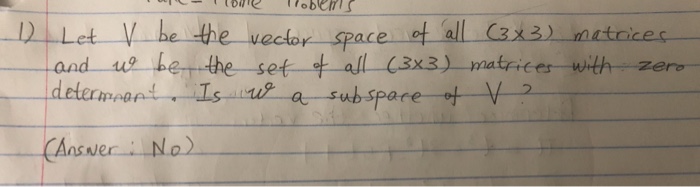 Problems
1) Let V be the vector space of all (3x3) matrices
and w be the set of all (3x3) matrices with zero
determnant. Is w a subspace of V?
(Answer: No)